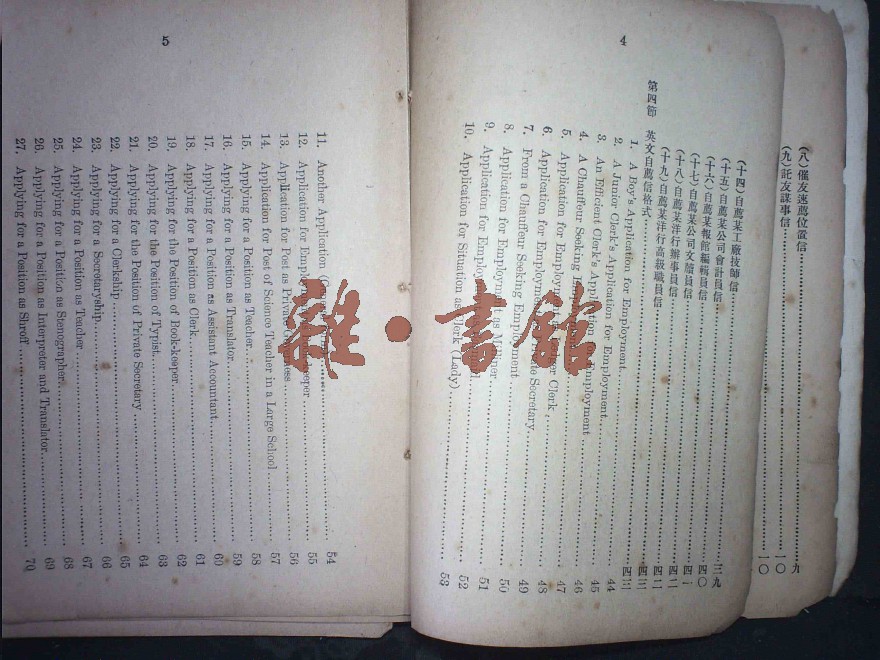 (八)催友速薦位置信……九
(九)託友謀事信……一〇
一〇
4
(十四)自薦某工廠技師信……三九
(十五)自薦某公司會計員信……四〇
(十六)自薦某報館編輯員信……四一
(十七)自薦某公司文牘員信……四二
(十八)自薦某洋行辦事員信……四二
(十九)自薦某洋行高級職員信……四三
第四節 英文自薦信格式……四三
1. A Boy's Application for Employment……44
2. A Junior Clerk's Application for Employment……45
3. An Efficient Clerk's Application Employment……46
4. A Chauffeur Seeking……47
5. Application for Employment Secretary……48
6. Application for Employment Clerk……49
7. From a Chauffeur Seeking Employment……50
8. Application for Employment as……51
9. Application for Employment……52
10. Application for Situation as Clerk (Lady)……53
5
11. Another Application……54
12. Application for……55
13. Application for Post as Private……56
14. Application for Post of Science Teacher in a Large School……57
15. Applying for a Position as Teacher……58
16. Applying for a Position as Translator……59
17. Applying for a Position as Assistant Accountant……60
18. Applying for a Position as Clerk……61
19. Applying for the Position of Book-keeper……62
20. Applying for the Position of Typist……63
21. Applying for the Position of Private Secretary……64
22. Applying for a Clerkship……65
23. Applying for a Secretaryship……66
24. Applying for a Position as Teacher……67
25. Applying for a Position as Stenographer……68
26. Applying for a Position as Interpreter and Translator……69
27. Applying for a Position as Shroff……70
雜·書館